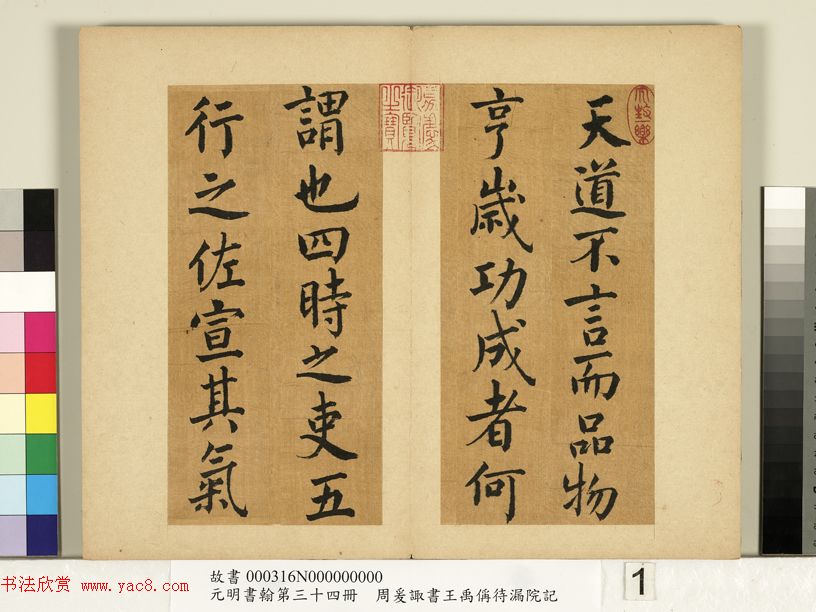 天道不言而品物
亨歲功成者何
謂也四時之吏五
行之佐宣其氣
故書 000316N000000000
元明書翰第三十四冊 周爰諏書王禹偁待漏院記
1
书法欣赏 www.yac8.com